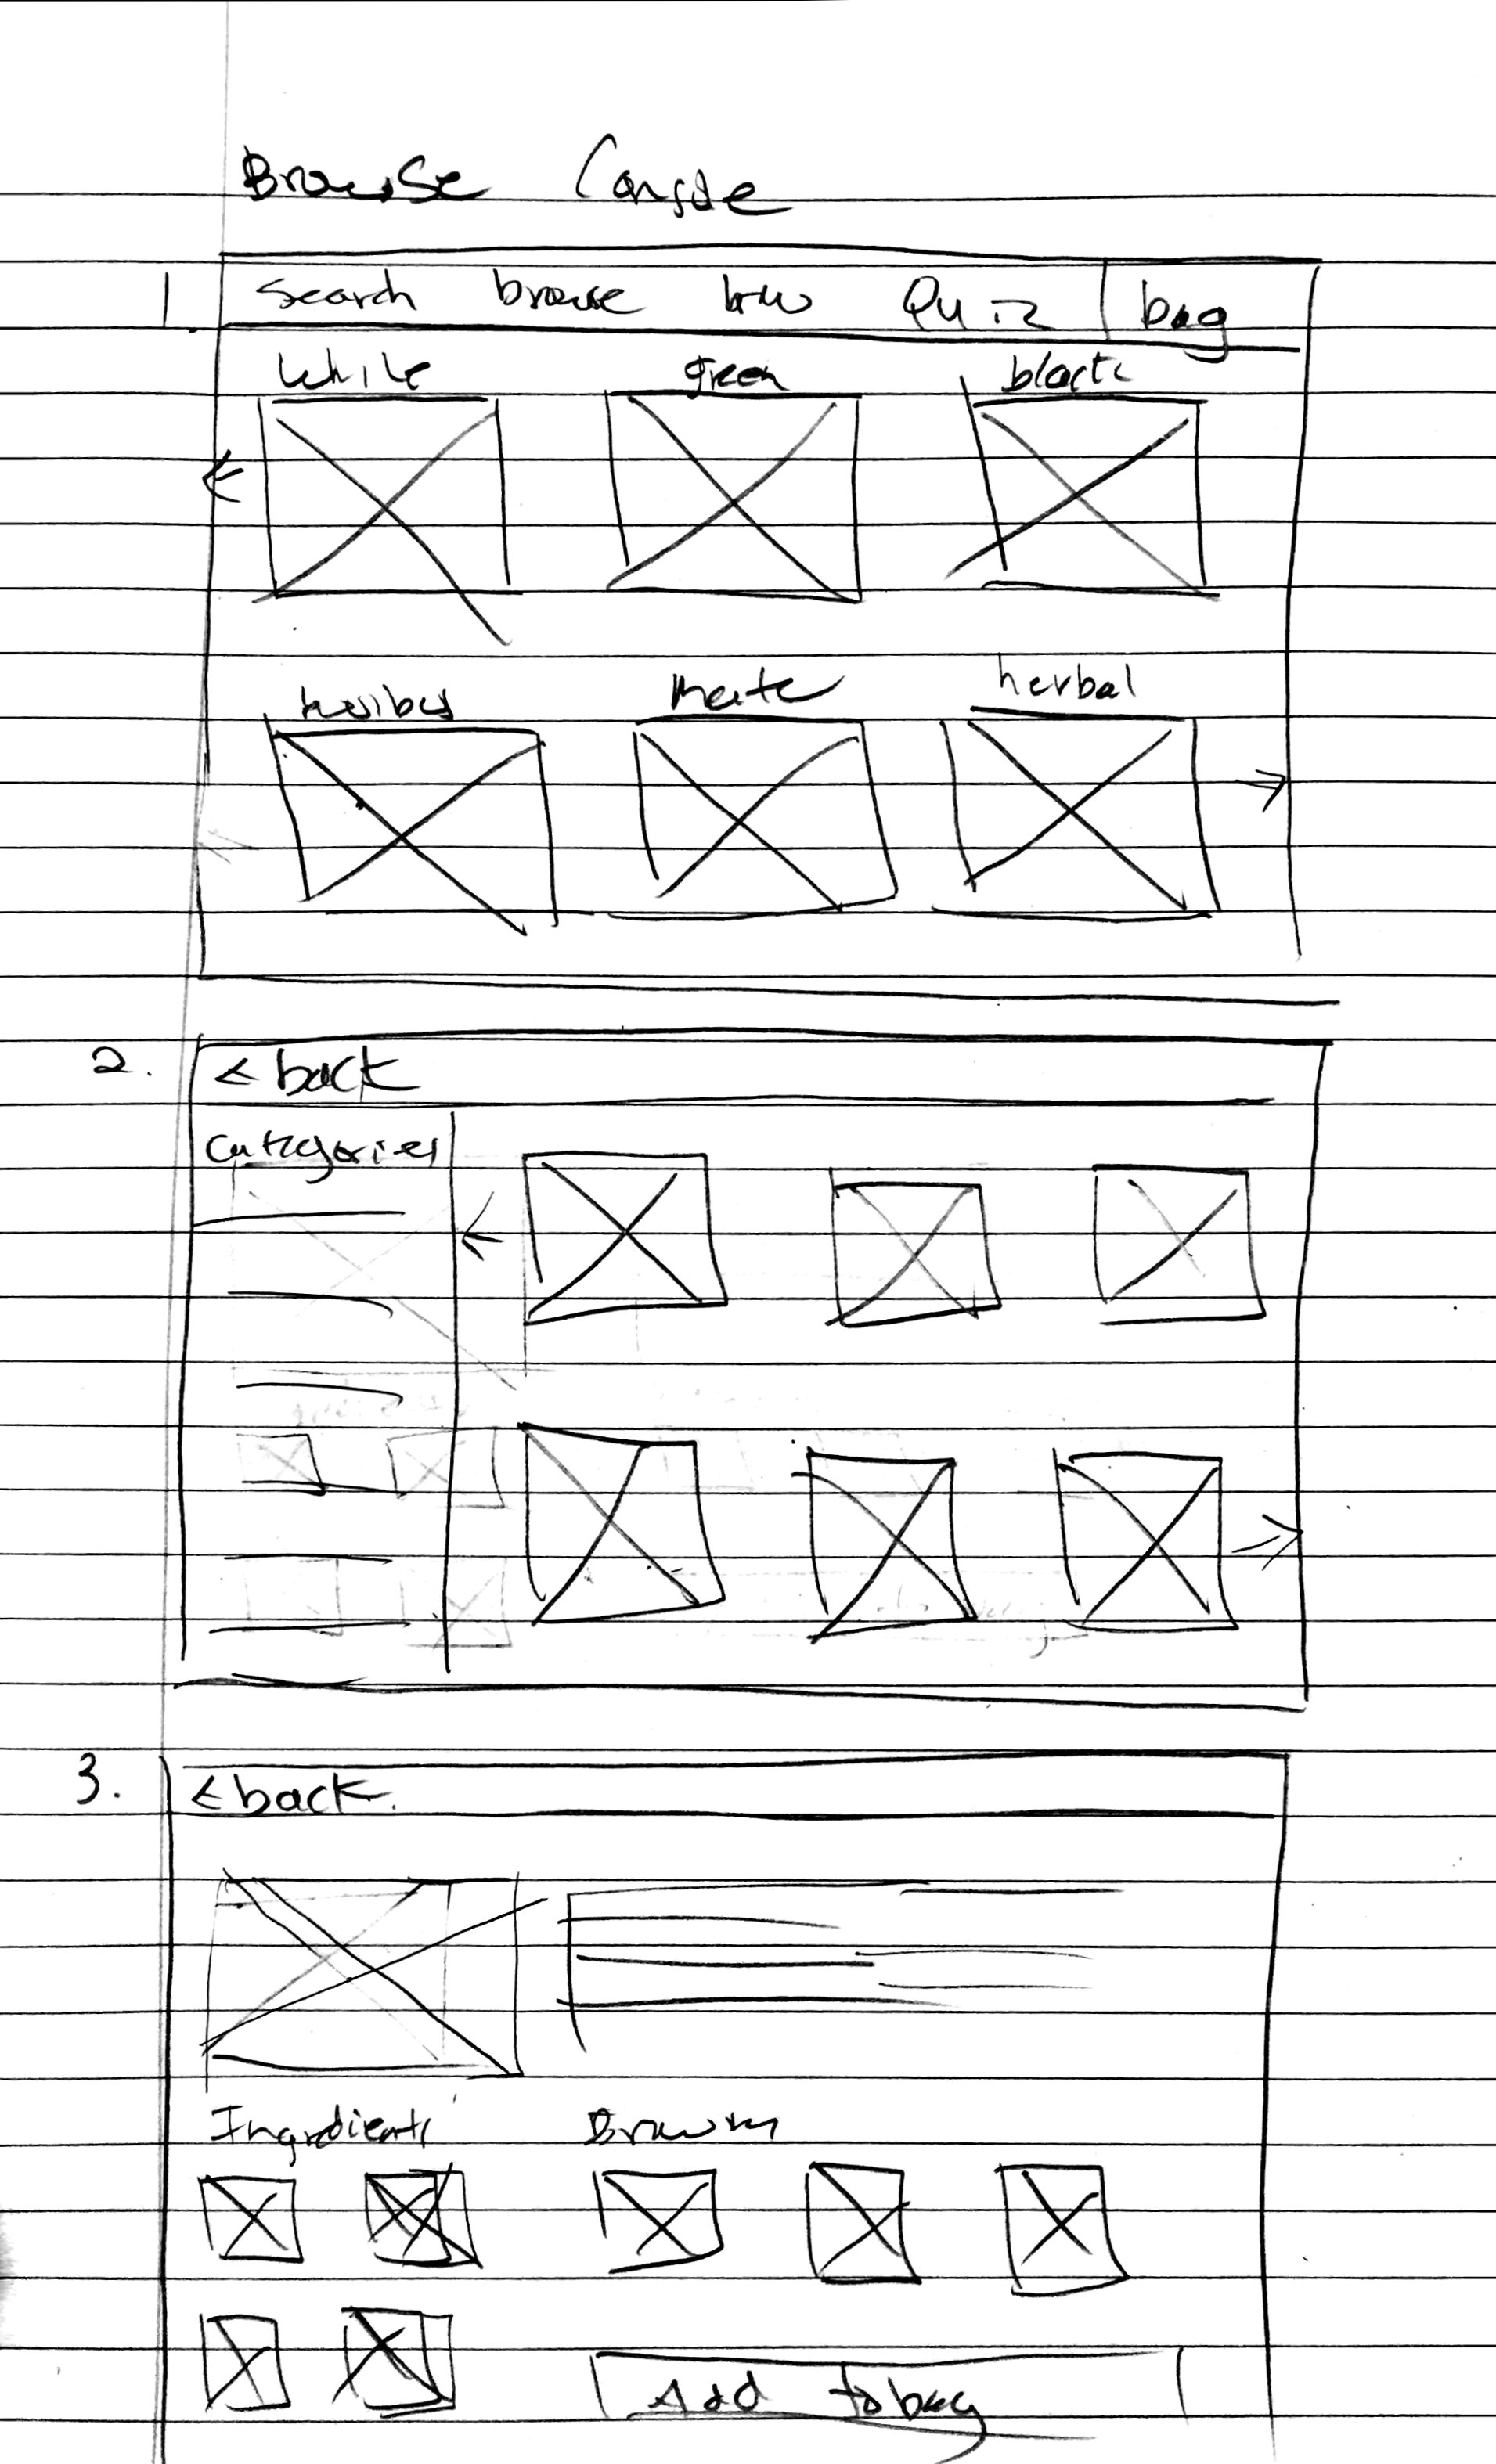 Browse Console
1. Search browse Quiz bag
white green black
mate herbal
2. < back
Categories
3. < back.
Ingredients
Add to bag